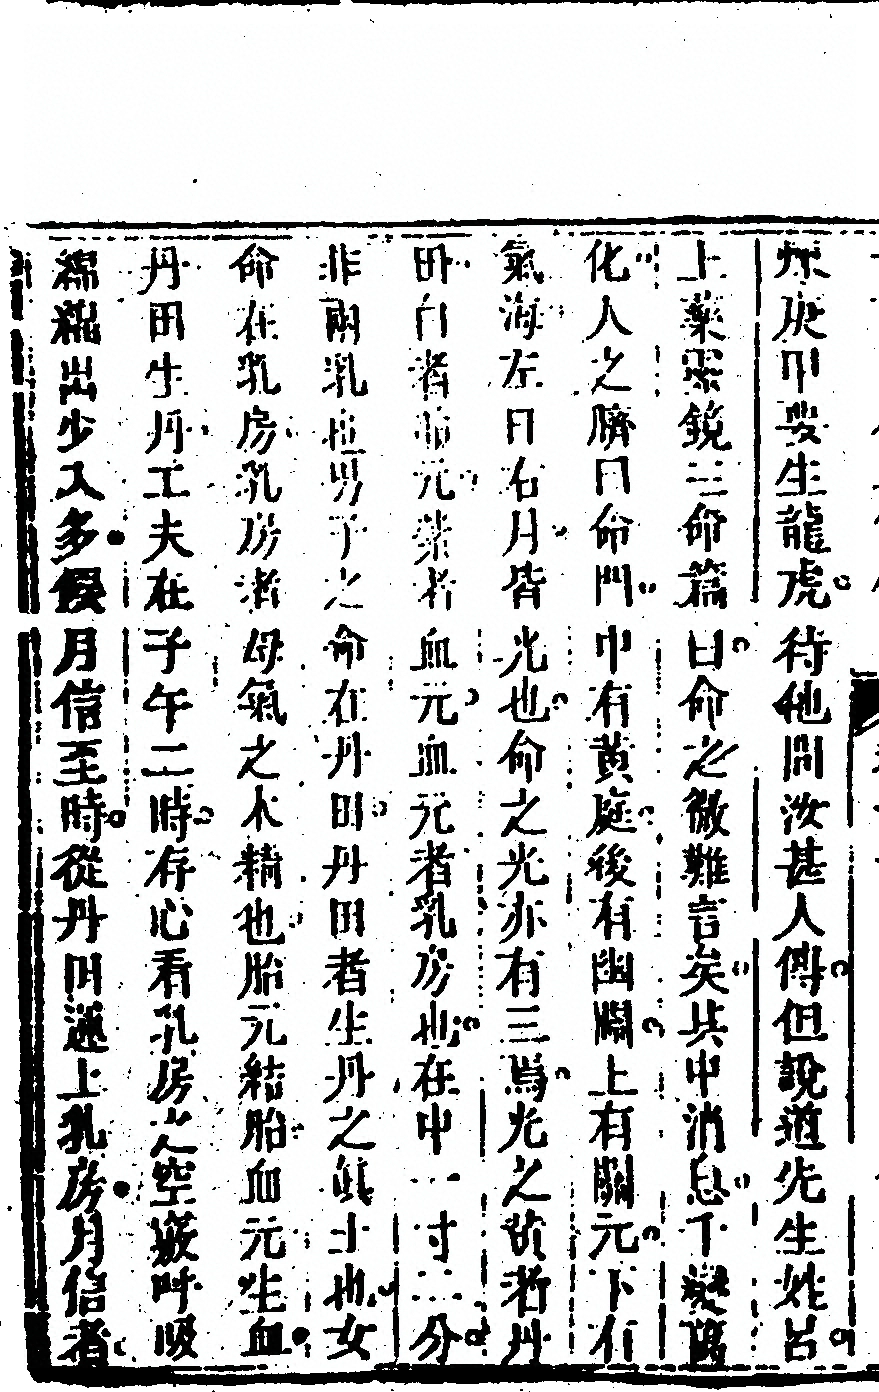 煉庚甲要生龍虎待他問汝甚人傳但說道先生姓呂
上藥靈鏡三命篇曰命之微難言矣其中消息千變
化人之臍曰命門中有黃庭後有幽關上有關元下有
氣海左日右月皆光也命之光亦有三焉光之黃者丹
田白者命元紫者血元血元者乳房也在中一寸二分
非兩乳也男子之命在丹田丹田者生丹之眞土也女
命在乳房乳房者母氣之木精也胎元結胎血元生血
丹田生丹工夫在子午二時存心看乳房之空竅呼吸
綿綿出少入多候月信至時從丹田運上乳房月信者